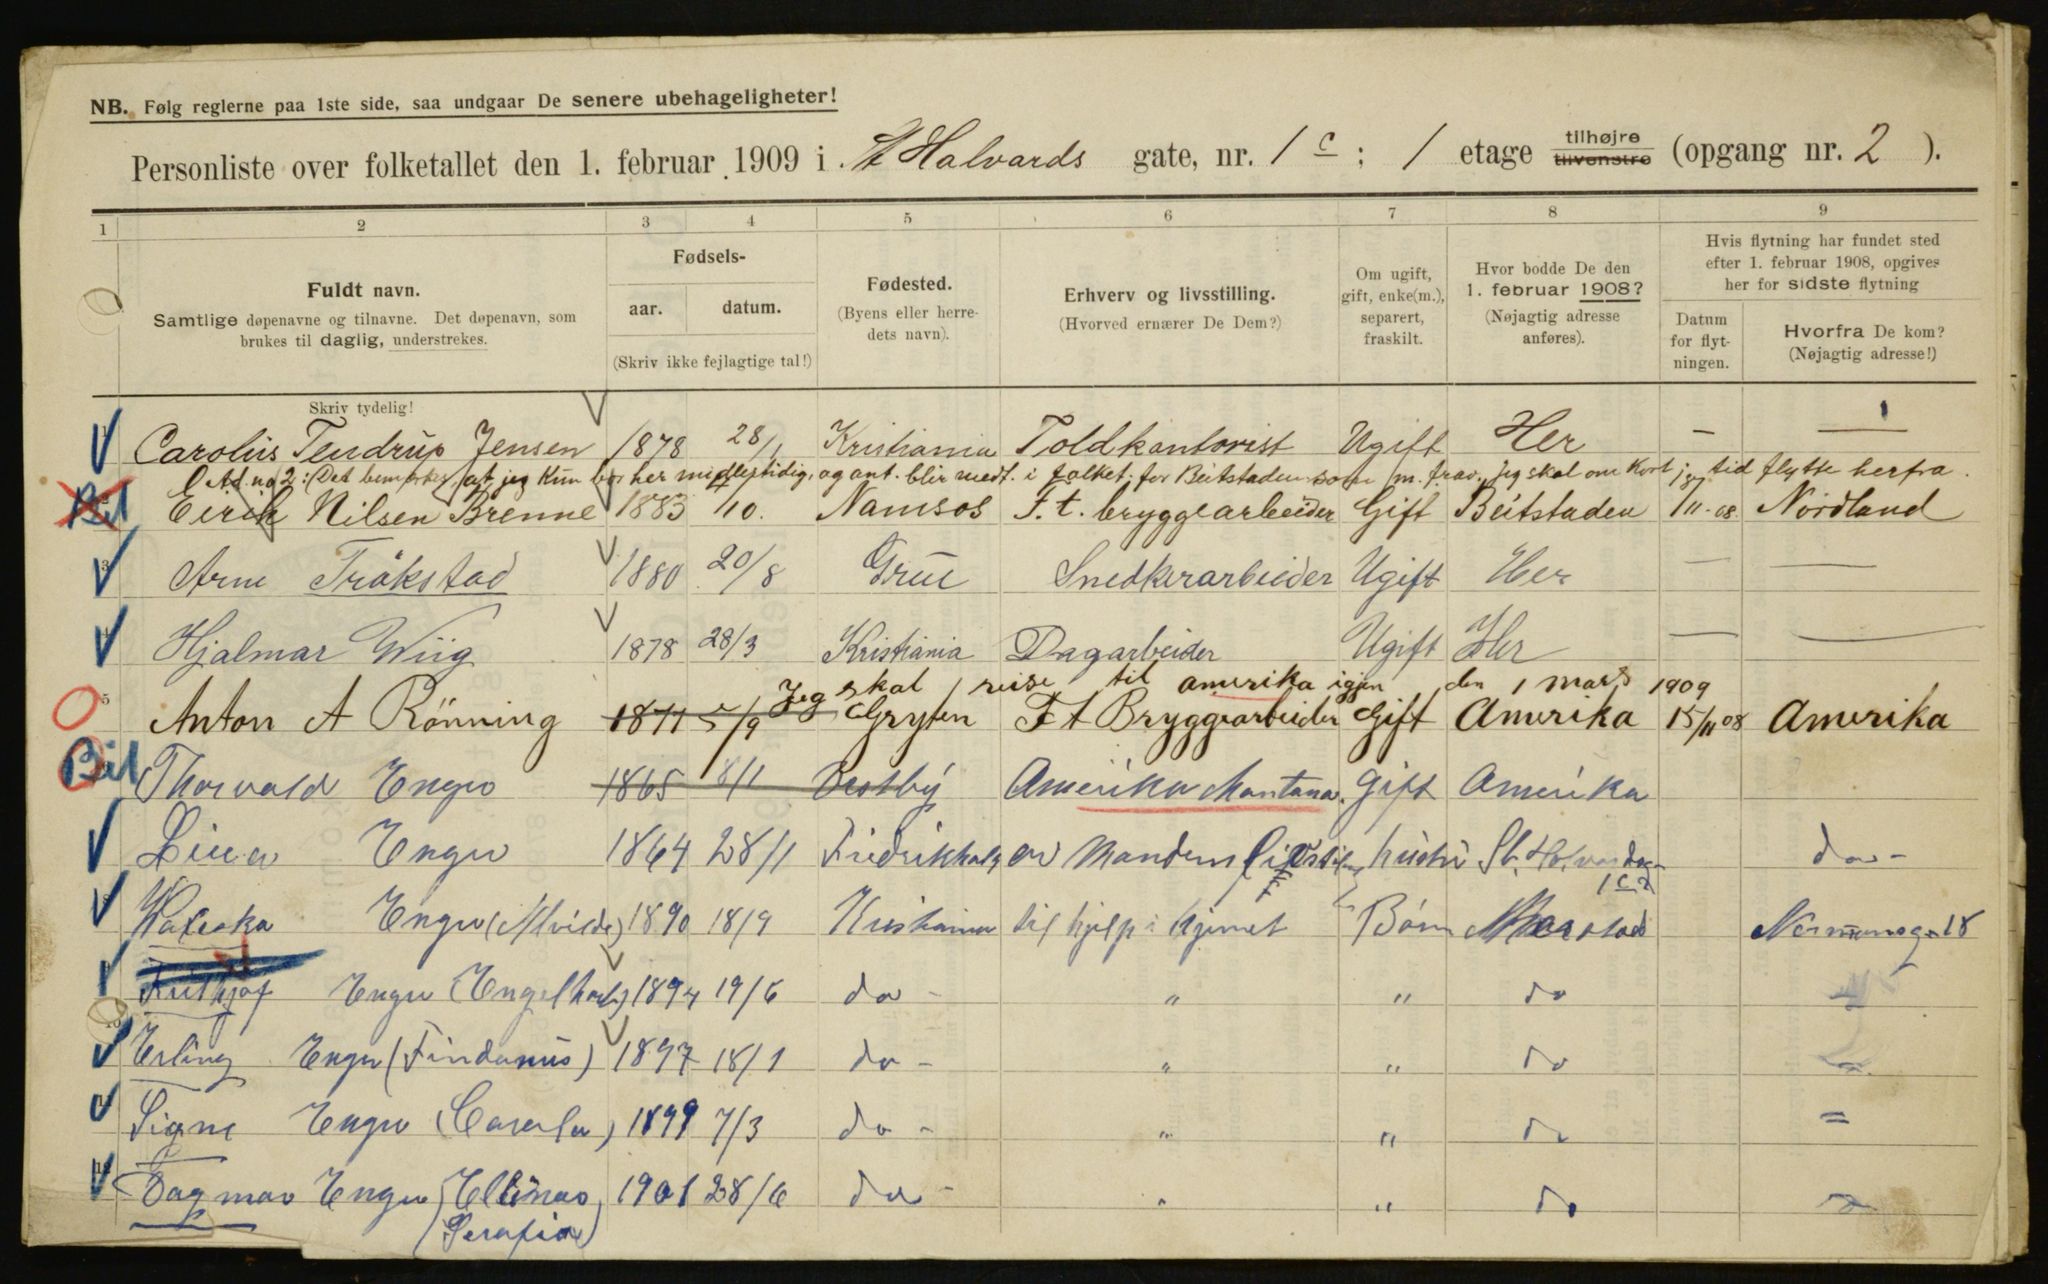 NB. Følg reglerne paa 1ste side, saa undgaar De senere ubehageligheter!
Personliste over folketallet den 1. februar 1909 i St Halvards gate, nr. 1 c ; 1 etage tilhøjre tilvenstre (opgang nr. 2 ).
1 2 3 4 5 6 7 8 9
Fuldt navn.
Samtlige døpenavne og tilnavne. Det døpenavn, som
brukes til daglig, understrekes.
Fødsels-
aar. datum.
(Skriv ikke fejlagtige tal!)
Fødested.
(Byens eller herre-
dets navn).
Erhverv og livsstilling.
(Hvorved ernærer De Dem?)
Om ugift,
gift, enke(m.),
separert,
fraskilt.
Hvor bodde De den
1. februar 1908?
(Nøjagtig adresse
anføres).
Hvis flytning har fundet sted
efter 1. februar 1908, opgives
her for sidste flytning
Datum
for flyt-
ningen.
Hvorfra De kom?
(Nøjagtig adresse!)
Skriv tydelig!
Carolus Tendrup Jensen 1878 28/1 Kristiania Toldkontorist Ugift Her — —
Ad. no 2: (Det bemerkes, at jeg kun bor her midlertidig, og ant. blir medt. i folket. for Beitstaden som m. frav. Jeg skal om kort tid flytte herfra.
Bil Eirik Nilsen Brenne 1883 /10. Namsos F. t. bryggearbeider Gift Beitstaden 1/11-08. Nordland
3 Arne Tråkstad 1880 20/8 Grue Snedkerarbeider Ugift Her — —
Hjalmar Wiig 1878 28/3 Kristiania Dagarbeider Ugift Her — —
Jeg skal reise til amerika igjen den 1 mars 1909
5 Anton A Rönning 1871 5/9 Gryten F t Bryggearbeider Gift Amerika 15/11 08 Amerika
Bil Thorvald Enger 1865 8/1 Vestby Amerika Mantana. gift Amerika
Lina Enger 1864 28/1 Fredrikhald av Mandens livstil hustru St. Halvardsg
1 c 2 do -
Valeska Enger (Alvilde) 1890 18/9 Kristiania til hjelp i hjemet Børn Normansg 18
Frithjof Enger (Engelhart) 1894 19/6 do - " " do
Erling Enger (Findanus) 1897 18/1 do - " " do
Signe Enger 1899 7/3 do - " " do =
Dagmar Enger (Ellinas 1901 28/6 do - " " do
Serafia)